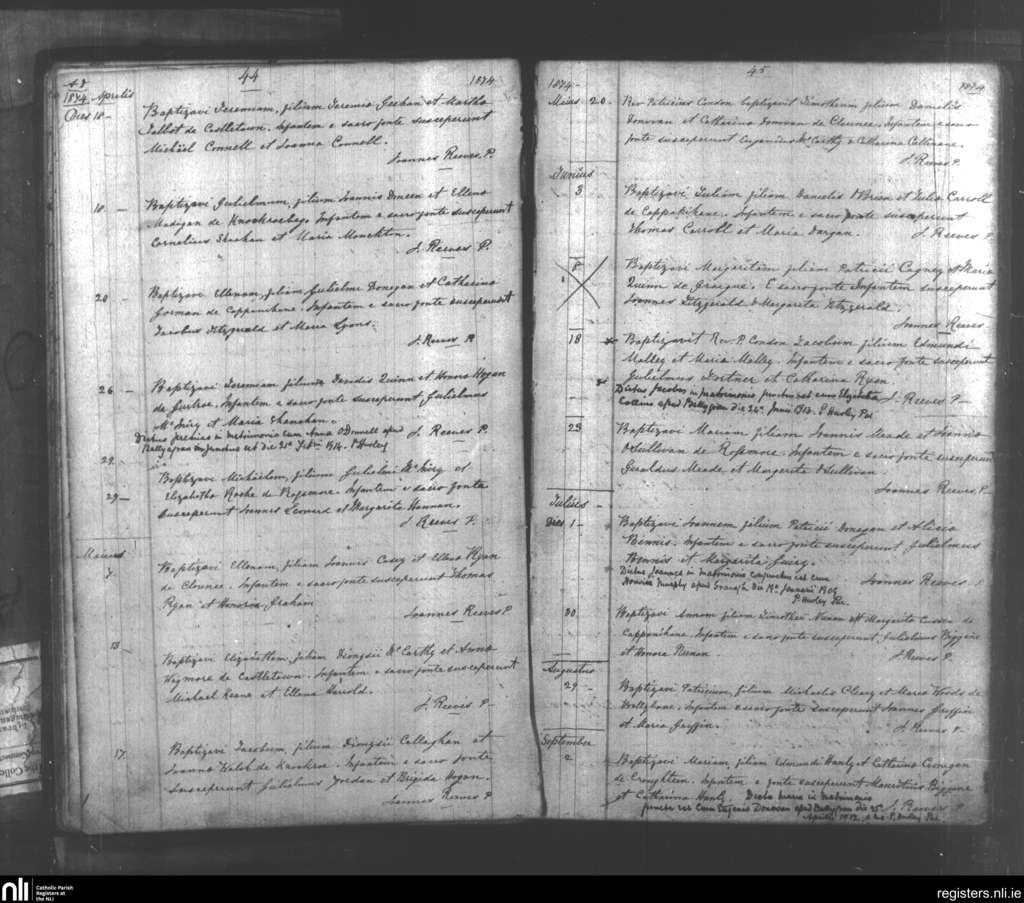 48
44
1874
1874 Aprilis
Dies 18 - Baptizavi Jeremiam, filium Jeremia Geehan et Martha
Talbot de Castletown. Infantem e sacro fonte susceperunt
Michael Connell et Joanna Connell.
Joannes Reeves, P.
18. - Baptizavi Gulielmum, filium Joannis Dineen et Ellena
Madigan de Infantem e sacro fonte susceperunt
Cornelius et Maria Monckton.
J. Reeves P.
20 - Baptizavi Ellenam, filiam Gulielmi Donegan et Catherina
Gorman de Cappanihane. Infantem e sacro fonte susceperunt
Jacobus Fitzgerald et Maria Lyons.
J. Reeves P
26 - Baptizavi Jeremiam filium Quinn et Honora Hogan
de Infantem e sacro fonte susceperunt Gulielmus
et Maria Shanahan.
J. Reeves P.
Dictus Jeremias in matrimonio cum Anna O'Donnell apud
Ballyagran conjunctus est die 21a Feb 1914. P. Hurley
29.
29 - Baptizavi Michaelem, filium Gulielmi et
Elizabetha Roche de Rossmore. Infantem e sacro fonte
susceperunt Joannes Leonard et Margarita Hannan.
J. Reeves P.
Maius
7. Baptizavi Ellenam, filiam Joannis Casey et Ellena Ryan
de Cloonee. Infantem e sacro fonte susceperunt Thomas
Ryan et Honora Graham
Joannes Reeves P
13 Baptizavi Elizabetham, filiam Dionysii McCarthy et Anna
Wigmore de Castletown. Infantem e sacro fonte susceperunt
Michael Keane et Ellena Harold.
J. Reeves P -
17. Baptizavi Jacobum, filium Dionysii Callaghan et
Joanna Walsh de Infantem e sacro fonte
susceperunt Gulielmus Jordan et Brigida Hogan.
Joannes Reeves P
45
1874 -
1874
Maius 20. Rev Patricius Condon baptizavit Timotheum filium Danielis
Donovan et Catharina Donovan de Cloonee. Infantem e sacro
fonte susceperunt Eugenius McCarthy & Catharina
J. Reeves P.
Junius
3 Baptizavi Juliam filiam Danielis O'Brien et Julia Carroll
de Cappanihane. Infantem e sacro fonte susceperunt
Thomas Carroll et Maria Dargan.
J. Reeves P
8 Baptizavi Margaritam filiam Patricii Cagney et Maria
Quinn de Graigne. E sacro fonte Infantem susceperunt
Joannes Fitzgerald & Margarita Fitzgerald.
Joannes Reeves
18 Baptizavit Rev. P. Condon Jacobum filium Edmundi
Malley et Maria Malley. Infantem e sacro fonte susceperunt
Gulielmus et Catharina Ryan.
J. Reeves P -
Dictus Jacobus in matrimonio junctus est cum Elizabetha
Collins apud Ballygran die 24a Junii 1913. P. Hurley Par.
23 Baptizavi Mariam filiam Joannis Meade et Joanna
O'Sullivan de Rossmore. Infantem e sacro fonte susceperunt
Geraldus Meade et Margarita O'Sullivan.
Joannes Reeves, P -
Julius
Dies 1 - Baptizavi Joannem filium Patricii Donegan et Alicia
Bennis. Infantem e sacro fonte susceperunt Gulielmus
Bennis et Margarita
Joannes Reeves
Dictus Joannes in matrimonio conjunctus est cum
Honora Murphy apud die 19a Januarii 1909
P. Hurley Par.
20. Baptizavi Annam filiam Timothei Noonan et Margarita Cussen de
Cappanihane. Infantem e sacro fonte susceperunt, Gulielmus Biggins
et Honora Noonan.
J. Reeves P -
Augustus
29 - Baptizavi Patricium, filium Michaelis Cleary et Maria Woods de
Infantem e sacro fonte susceperunt Joannes Griffin
et Maria Griffin.
J. Reeves P -
September
2 Baptizavi Mariam filiam Edmundi Hanly et Catherina Cronyan
de Infantem e fonte susceperunt Mauritius Biggins
et Catharina Hanly.
J. Reeves P
Dicta Maria in matrimonio
juncta est cum Eugenio Donovan apud Ballygran die 25a
Aprilis 1912, a me P. Hurley Par.
nli Catholic Parish
Registers at
the NLI
registers.nli.ie